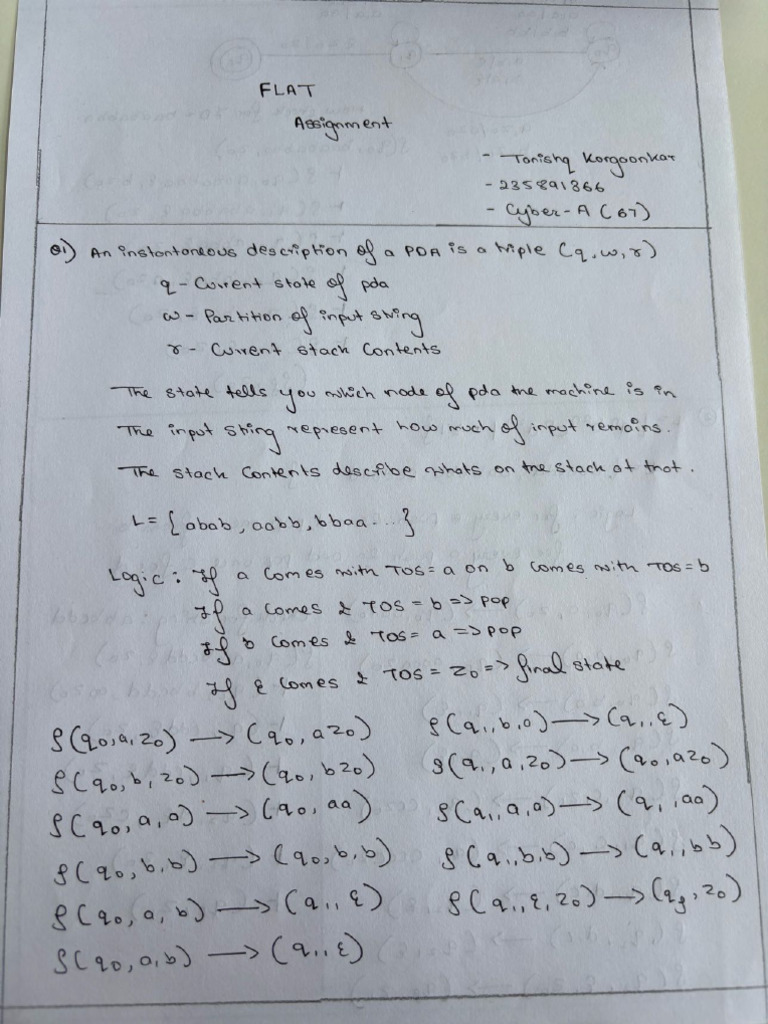 FLAT
Assignment
- Tanishq Korgaonkar
- 235891366
- Cyber-A (67)
Q1) An instantaneous description of a PDA is a triple (q, w, r)
q - Current state of pda
w - Partition of input string
r - Current stack Contents
The state tells you which node of pda the machine is in
The input string represent how much of input remains.
The stack Contents describe whats on the stack at that.
L = {abab, aabb, bbaa ...}
Logic : If a Comes with TOS = a on b comes with TOS = b
If a comes & TOS = b => pop
If b comes & TOS = a => pop
If ε Comes & TOS = z0 => final state
δ(q0, a, z0) → (q0, az0)
δ(q0, b, z0) → (q0, bz0)
δ(q0, a, a) → (q0, aa)
δ(q0, b, b) → (q0, b, b)
δ(q0, a, b) → (q1, ε)
δ(q0, a, b) → (q1, ε)
δ(q1, b, a) → (q1, ε)
δ(q1, a, z0) → (q0, az0)
δ(q1, a, a) → (q1, aa)
δ(q1, b, b) → (q1, bb)
δ(q1, ε, z0) → (qf, z0)